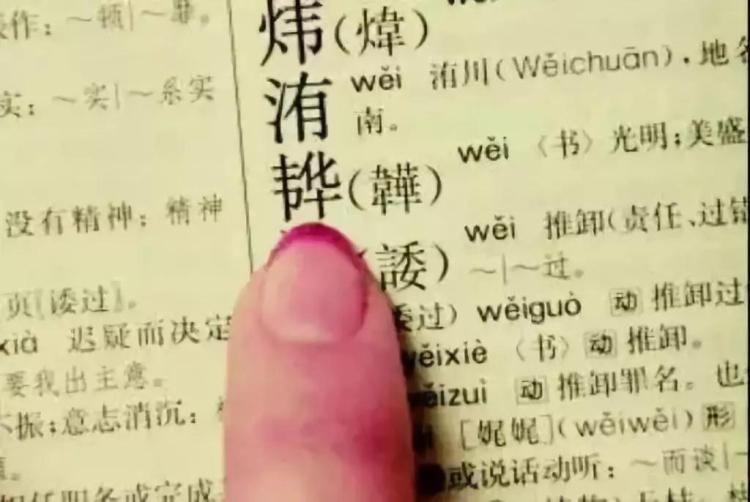 作：～顿|～靡。
实：～实|～系实
没有精神；精神
页〖诿过〗。
xià 迟疑而决定
要我出主意。
不振；意志消沉：
任职务或完成
炜(煒)
洧 wěi 洧川(Wěichuān)，地名
南。
韡(韡) wěi 〈书〉光明；美盛
(諉) wěi 推卸(责任、过错
～|～过。
过) wěiguò 动 推卸过
wěixiè 〈书〉动 推卸。
wěizuì 动 推卸罪名。也
[娓娓](wěiwěi) 形
或说话动听：～而谈|～